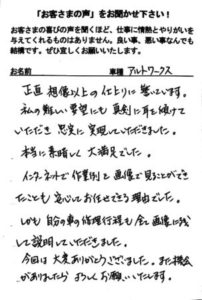 「お客さまの声」をお聞かせ下さい！
お客さまの喜びの声を聞くほど、仕事に情熱とやりがいを
与えてくれるものはありません。良い事、悪い事なんでも
結構です。ぜひ宜しくお願いいたします。
お名前　車種 アルトワークス
正直想像以上の仕上りに驚いています。
私の難しい要望にも真剣に耳を傾けて
いただき 忠実に実現していただきました。
本当に素晴しく大満足でした。
インターネットで作業例を画像で見ることができ
たことも安心してお任せできる理由でした。
しかも自分の車の修理行程も全て画像に残
して説明していただきました。
今回は大変ありがとうございました。また機会
がありましたらよろしくお願いいたします。